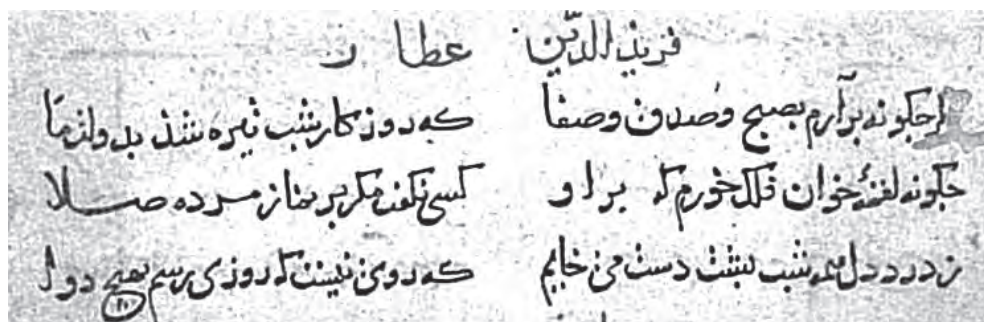 فرید الدین عطار
جکونه برآرم بصبح وصدق وصفا که روز کار شب تیره شد
جکونه لقمهٔ خوان فلک خورم که بر او کسی نکفت مکر بر جناز مرده صلا
ز درد دل همه شب بشت دست می خایم که روی نیست که روزی رسم بهیج دوا